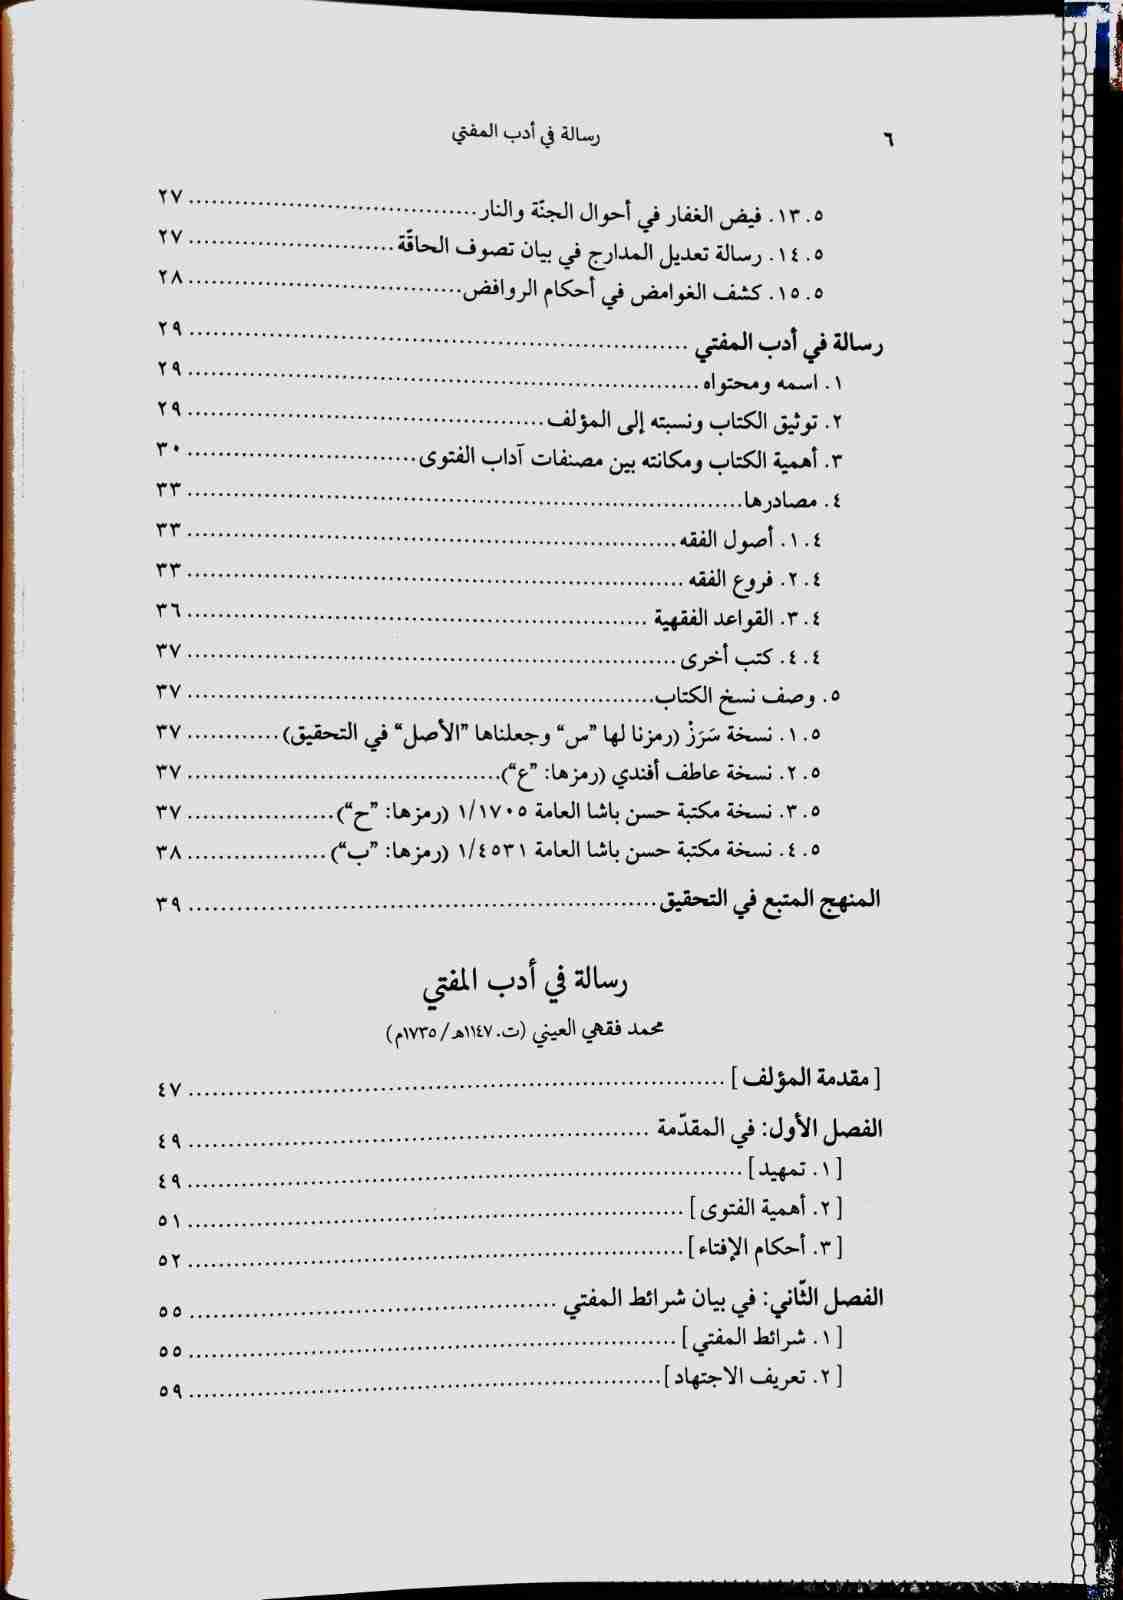 ٦ رسالة في أدب المفتي
٥. ١٣. فيض الغفار في أحوال الجنّة والنار .................................... ٢٧
٥. ١٤. رسالة تعديل المدارج في بيان تصوف الحاقّة .......................... ٢٧
٥. ١٥. كشف الغوامض في أحكام الروافض .................................. ٢٨
رسالة في أدب المفتي ............................................................... ٢٩
١. اسمه ومحتواه ............................................................... ٢٩
٢. توثيق الكتاب ونسبته إلى المؤلف ............................................. ٢٩
٣. أهمية الكتاب ومكانته بين مصنفات آداب الفتوى ............................. ٣٠
٤. مصادرها ..................................................................... ٣٣
٤. ١. أصول الفقه ............................................................. ٣٣
٤. ٢. فروع الفقه ............................................................. ٣٣
٤. ٣. القواعد الفقهية ......................................................... ٣٦
٤. ٤. كتب أخرى ............................................................. ٣٧
٥. وصف نسخ الكتاب ........................................................... ٣٧
٥. ١. نسخة سَرَزْ (رمزنا لها ”س“ وجعلناها ”الأصل“ في التحقيق) ............ ٣٧
٥. ٢. نسخة عاطف أفندي (رمزها: ”ع“) ....................................... ٣٧
٥. ٣. نسخة مكتبة حسن باشا العامة ١/١٧٠٥ (رمزها: ”ح“) ................... ٣٧
٥. ٤. نسخة مكتبة حسن باشا العامة ١/٤٥٣١ (رمزها: ”ب“) .................. ٣٨
المنهج المتبع في التحقيق ........................................................... ٣٩
رسالة في أدب المفتي
محمد فقهي العيني (ت. ١١٤٧هـ/ ١٧٣٥م)
[ مقدمة المؤلف ] .................................................................... ٤٧
الفصل الأول: في المقدّمة .......................................................... ٤٩
[ ١. تمهيد ] ..................................................................... ٤٩
[ ٢. أهمية الفتوى ] .............................................................. ٥١
[ ٣. أحكام الإفتاء ] .............................................................. ٥٢
الفصل الثّاني: في بيان شرائط المفتي .............................................. ٥٥
[ ١. شرائط المفتي ] ............................................................. ٥٥
[ ٢. تعريف الاجتهاد ] ........................................................... ٥٩